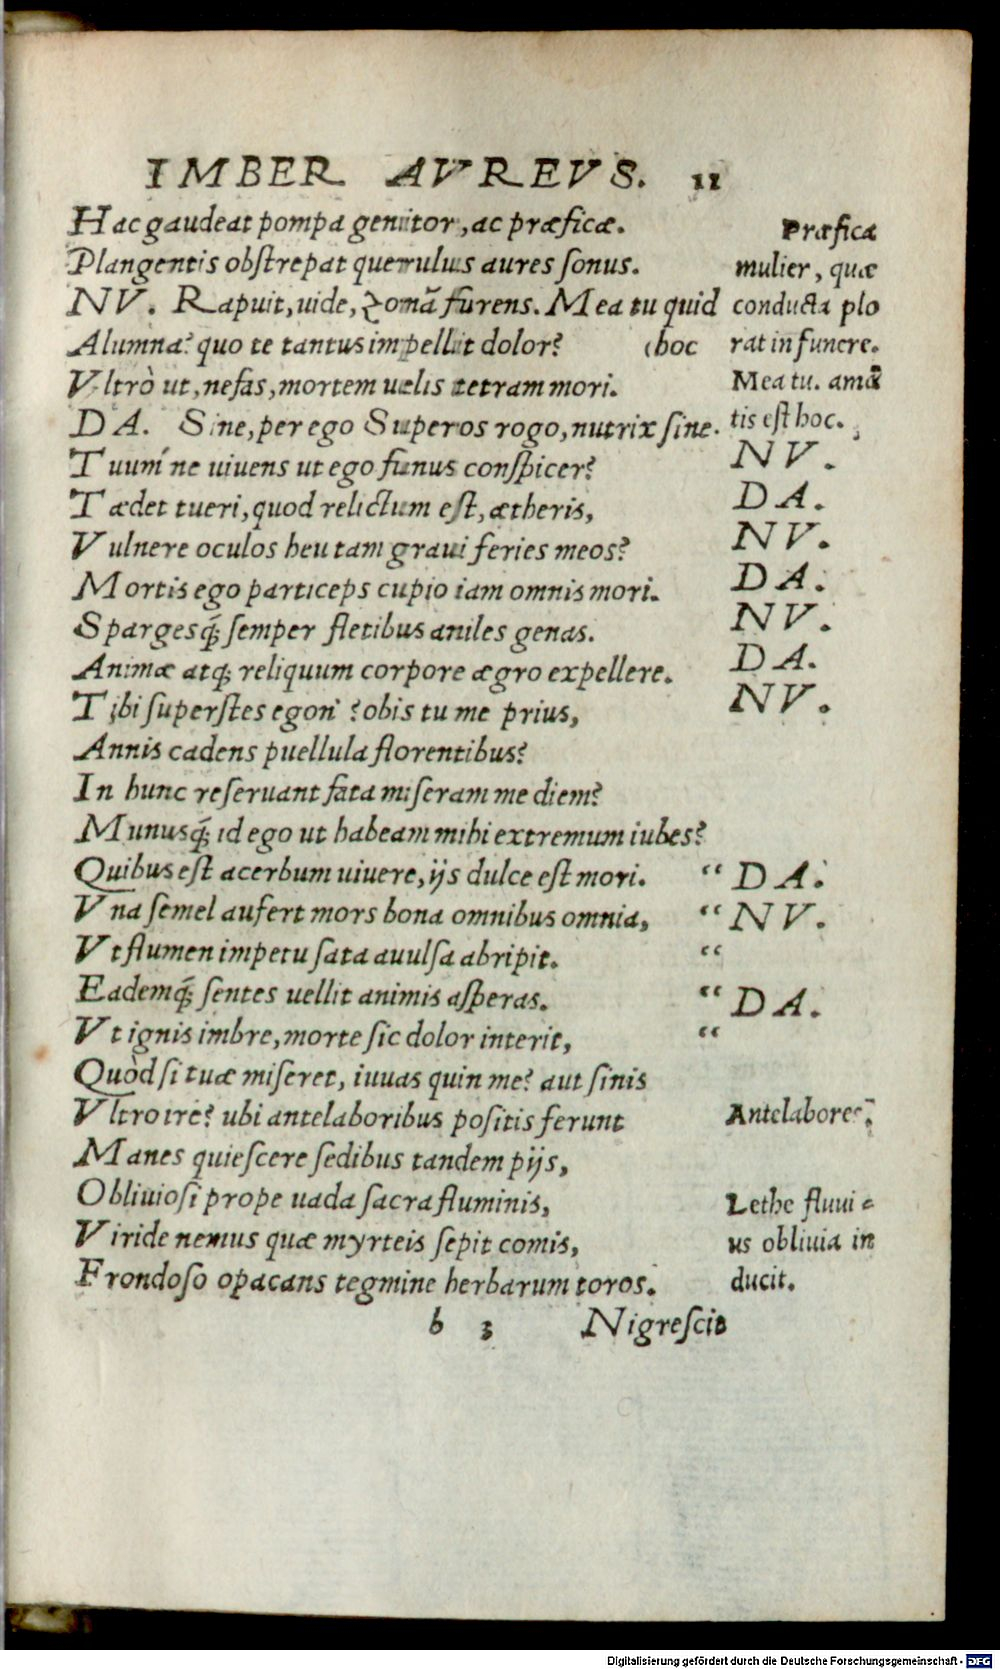 IMBER AVREVS. 11
Hac gaudeat pompa genitor, ac præficæ.
Plangentis obstrepat querulus aures sonus.
NV. Rapuit, uide, zomã furens. Mea tu quid
Alumna? quo te tantus impellit dolor? (hoc
Vltrò ut, nefas, mortem uelis tetram mori.
DA. Sine, per ego Superos rogo, nutrix sine.
Tuum'ne uiuens ut ego funus conspicer?
Tædet tueri, quod relictum est, ætheris,
Vulnere oculos heu tam graui feries meos?
Mortis ego particeps cupio iam omnis mori.
Spargesq́; semper fletibus aniles genas.
Animæ atq; reliquum corpore ægro expellere.
Tibi superstes egon'? obis tu me prius,
Annis cadens puellula florentibus?
In hunc reseruant fata miseram me diem?
Munusq́; id ego ut habeam mihi extremum iubes?
Quibus est acerbum uiuere, ijs dulce est mori.
Vna semel aufert mors bona omnibus omnia,
Vt flumen impetu sata auulsa abripit.
Eademq́; sentes uellit animis asperas.
Vt ignis imbre, morte sic dolor interit,
Quòd si tuæ miseret, iuuas quin me? aut sinis
Vltro ire? ubi antelaboribus positis ferunt
Manes quiescere sedibus tandem pijs,
Obliuiosi prope uada sacra fluminis,
Viride nemus quæ myrteis sepit comis,
Frondoso opacans tegmine herbarum toros.
b 3 Nigrescit
Præficæ
mulier, quæ
conducta plo
rat in funere.
Mea tu. amã
tis est hoc.
NV.
DA.
NV.
DA.
NV.
DA.
NV.
“ DA.
“ NV.
“
“ DA.
“
Antelabores
Lethe fluui
us obliuia in
ducit.
Digitalisierung gefördert durch die Deutsche Forschungsgemeinschaft - DFG